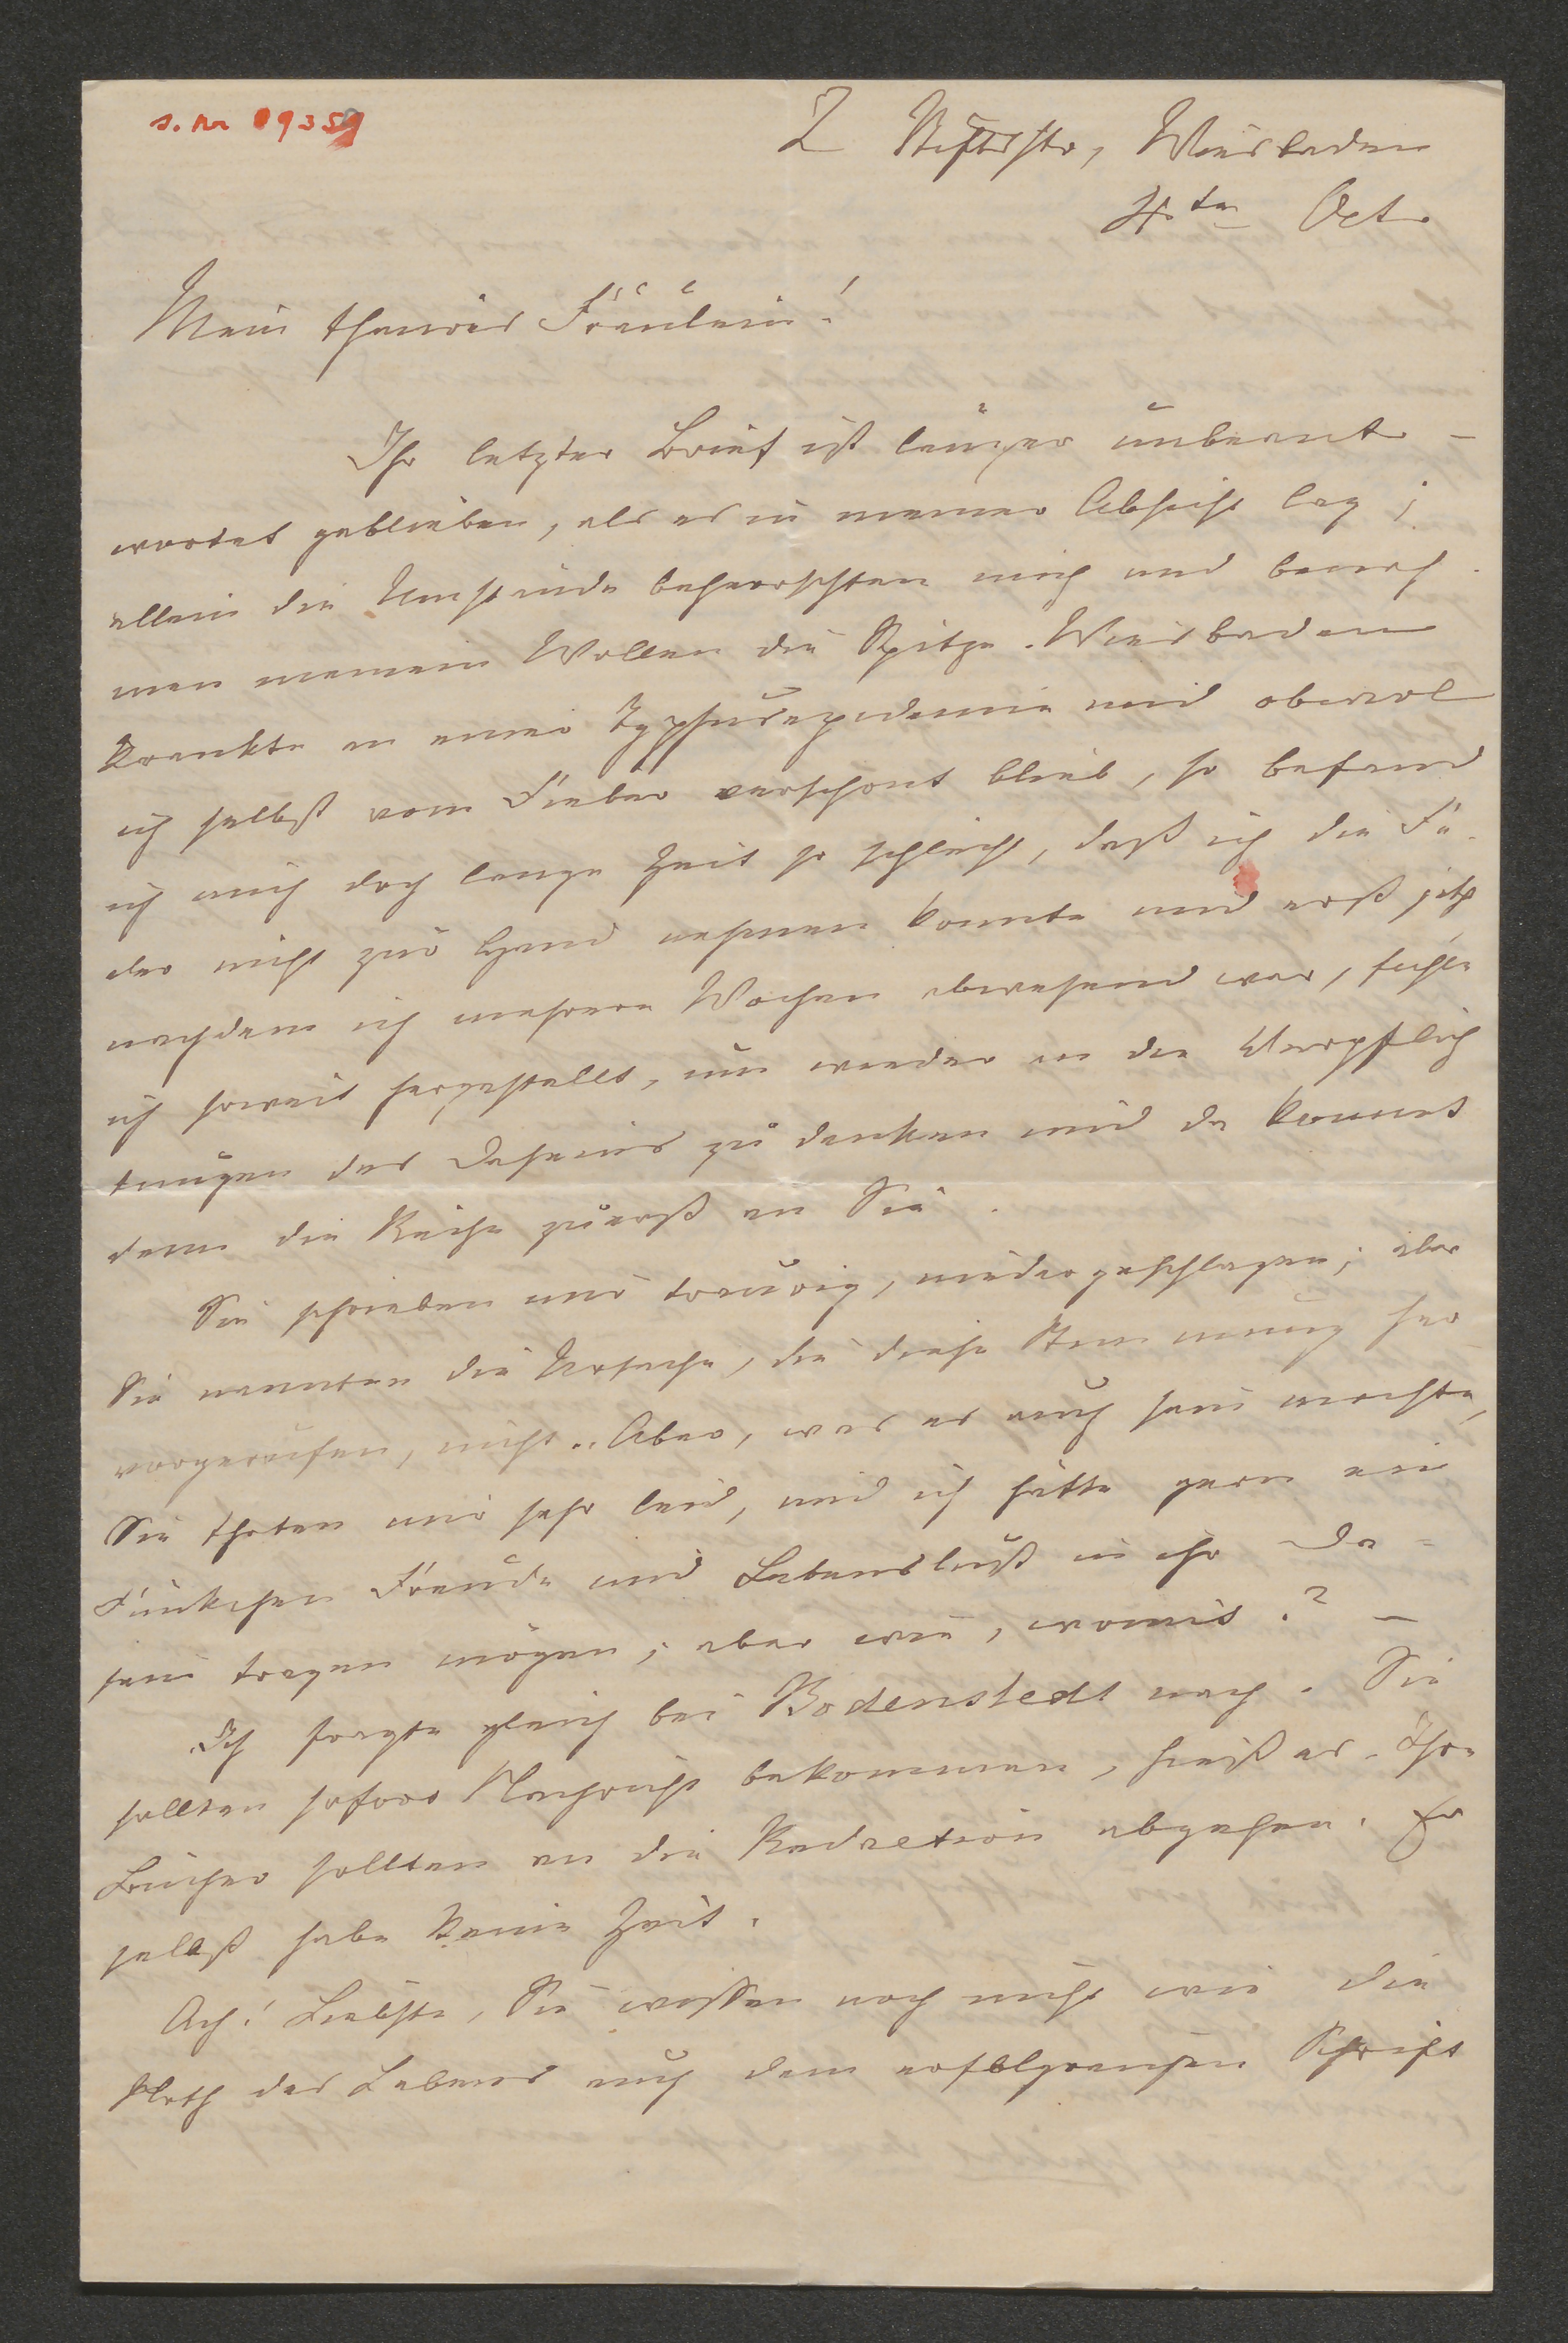 s. Nr 0935
2 Stiftstr, Wiesbaden
4ten Oct.
Mein theures Fräulein!
Ihr letzter Brief ist länger unbeant-
wortet geblieben, als es in meiner Absicht lag;
allein die Umstände beherrschten mich und benah-
men meinem Wollen die Spitze. Wiesbaden
krankte an einer Typhusepidemie und obwol
ich selbst vom Fieber verschont blieb, so befand
ich mich doch lange Zeit so schlecht, daß ich die Fe-
der nicht zur Hand nehmen konnte und erst jetzt
nachdem ich mehrere Wochen abwesend war, fühle
ich soweit hergestellt, um wieder an die Verpflich
tungen des Daseins zu denken und da kommt
denn die Reihe zuerst an Sie.
Sie schrieben mir traurig, niedergeschlagen; aber
Sie nannten die Ursache, die diese Stimmung her
vorgerufen, nicht. Aber, was es auch sein mochte,
Sie thaten mir sehr leid, und ich hätte gern ein
Fünkchen Freude und Lebenslust in ihr Da-
sein tragen mögen; aber wie, womit? –
Ich fragte gleich bei Bodenstedt nach. Sie
sollten sofort Nachricht bekommen, hieß es. Ihre
Bücher sollten an die Redaction abgehen. Er
selbst habe keine Zeit.
Ach! Liebste, Sie wissen noch nicht wie die
Noth des Lebens auch dem erfolgreichen Schrift